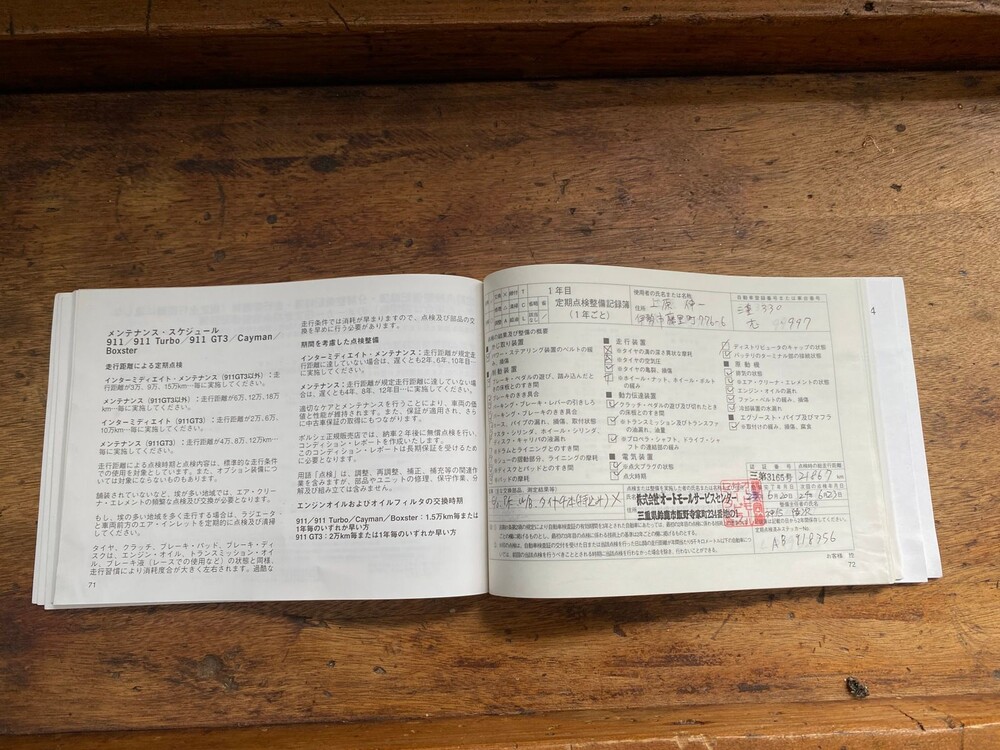 メンテナンス・スケジュール
911／911 Turbo／911 GT3／Cayman／
Boxster
走行距離による定期点検
インターミディエイト・メンテナンス（911GT3以外）：走
行距離が3万、9万、15万km…毎に実施してください。
メンテナンス（911GT3以外）：走行距離が6万、12万、18万
km…毎に実施してください。
インターミディエイト（911GT3）：走行距離が2万、6万、
10万km…毎に実施してください。
メンテナンス（911GT3）：走行距離が4万、8万、12万km…
毎に実施してください。
走行距離による点検時期と点検内容は、標準的な走行条件
での使用を対象としています。また、オプション装備につ
いては対象にならないものもあります。
舗装されていないなど、埃が多い地域では、エア・クリー
ナ・エレメントの頻繁な点検及び交換が必要となります。
もしり、埃の多い地域を多く走行する場合は、ラジエータ
と車両前方のエア・インレットを定期的に点検及び清掃
してください。
タイヤ、クラッチ、ブレーキ・パッド、ブレーキ・ディ
スクは、エンジン・オイル、トランスミッション・オイ
ル、ブレーキ液（レースでの使用など）の状態と同様、
走行習慣により消耗度合が大きく左右されます。過酷な
71
走行条件では消耗が早まりますので、点検及び部品の交
換を早めに行う必要があります。
期間を考慮した点検整備
インターミディエイト・メンテナンス：走行距離が規定走
行距離に達していない場合は、遅くとも2年、6年、10年目…
に実施してください。
メンテナンス：走行距離が規定走行距離に達していない場
合は、遅くとも4年、8年、12年目…に実施してください。
適切なケアとメンテナンスを行うことにより、車両の価
値と性能が維持されます。また、保証が適用され、さら
に中古車保証の取得にもつながります。
ポルシェ正規販売店では、納車2年後に無償点検を行い、
コンディション・レポートを作成いたします。
このコンディション・レポートは長期保証を受けるため
に必要となります。
用語「点検」は、調整、再調整、補正、補充等の関連作
業を含みますが、部品やユニットの修理、保守作業、分
解及び組み立ては含みません。
エンジンオイルおよびオイルフィルタの交換時期
911／911 Turbo／Cayman／Boxster：1.5万km毎または
1年毎のいずれか早い方
911 GT3：2万km毎または1年毎のいずれか早い方
1年目
定期点検整備記録簿
（1年ごと）
使用者の氏名または名称
住所
自動車登録番号または車台番号
330
997
点検の結果及び整備の概要
かじ取り装置
パワー・ステアリング装置のベルトの緩
み、損傷
制動装置
ブレーキ・ペダルの遊び、踏み込んだと
きの床板とのすき間
ブレーキのきき具合
パーキング・ブレーキ・レバーの引きしろ
パーキング・ブレーキのきき具合
ホース、パイプの漏れ、損傷、取付状態
マスタ・シリンダ、ホイール・シリンダ、
ディスク・キャリパの液漏れ
ドラムとライニングとのすき間
シューの摺動部分、ライニングの摩耗
ディスクとパッドとのすき間
パッドの摩耗
■ 走行装置
※タイヤの溝の深さ異状な摩耗
※タイヤの空気圧
※タイヤの亀裂、損傷
※ホイール・ナット、ホイール・ボルト
の緩み
■ 動力伝達装置
クラッチ・ペダルの遊び及び切れたとき
の床板とのすき間
※トランスミッション及びトランスファ
の油漏れ、油量
※プロペラ・シャフト、ドライブ・シャ
フトの連結部の緩み
■ 電気装置
※点火プラグの状態
点火時期
ディストリビュータのキャップの状態
バッテリのターミナル部の接続状態
■ 原動機
排気の状態
※エア・クリーナ・エレメントの状態
エンジン・オイルの漏れ
ファン・ベルトの緩み、損傷
冷却装置の水漏れ
■ エグゾースト・パイプ及びマフラ
※取付けの緩み、損傷、腐食
認証番号
点検時の総走行距離
第3165号
21867 km
株式会社オートモールサービスセンター
三重県鈴鹿市飯野寺家町234番地の1
AB 918356
お客様 控
72
4